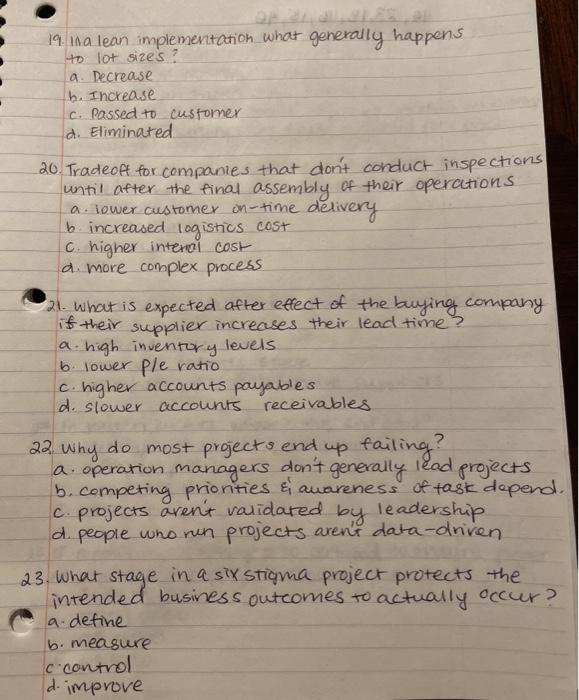 19. In a lean implementation what generally happens
to lot sizes?
a. Decrease
b. Increase
c. Passed to customer
d. Eliminated
20. Tradeoff for companies that don't conduct inspections
until after the final assembly of their operations
a. lower customer on-time delivery
b. increased logistics cost
c. higher internal cost
d. more complex process
21. What is expected after effect of the buying company
if their supplier increases their lead time?
a. high inventory levels
b. lower P/e ratio
c. higher accounts payables
d. slower accounts receivables
22. Why do most projects end up failing?
a. operation managers don't generally lead projects
b. competing priorities & awareness of task depend.
c. projects aren't validated by leadership
d. people who run projects aren't data-driven
23. What stage in a six stigma project protects the
intended business outcomes to actually occur?
a. define
b. measure
c. control
d. improve